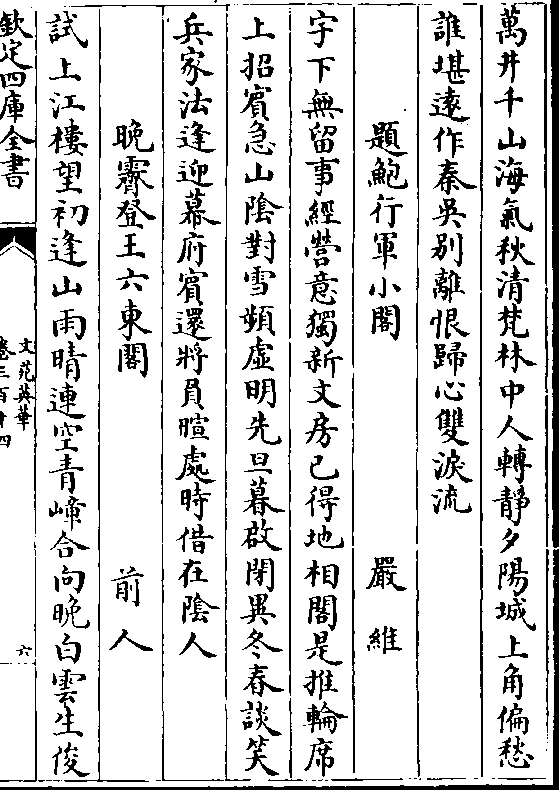 萬井千山海氣秋清梵林中人轉靜夕陽城上角偏愁
誰堪逺作秦吳别離恨歸心雙淚流
題鮑行軍小閣 嚴維
宇下無留事經營意獨新文房已得地相閣是推輪席
上招賓急山隂對雪頻虚明先旦暮啟閉異冬春談笑
兵家法逢迎幕府賓還將負暄處時借在隂人
晚霽登王六東閣 前人
試上江樓望初逢山雨晴連空青嶂合向晚白雲生俊
欽定四庫全書
文苑英華
卷三百十四
六